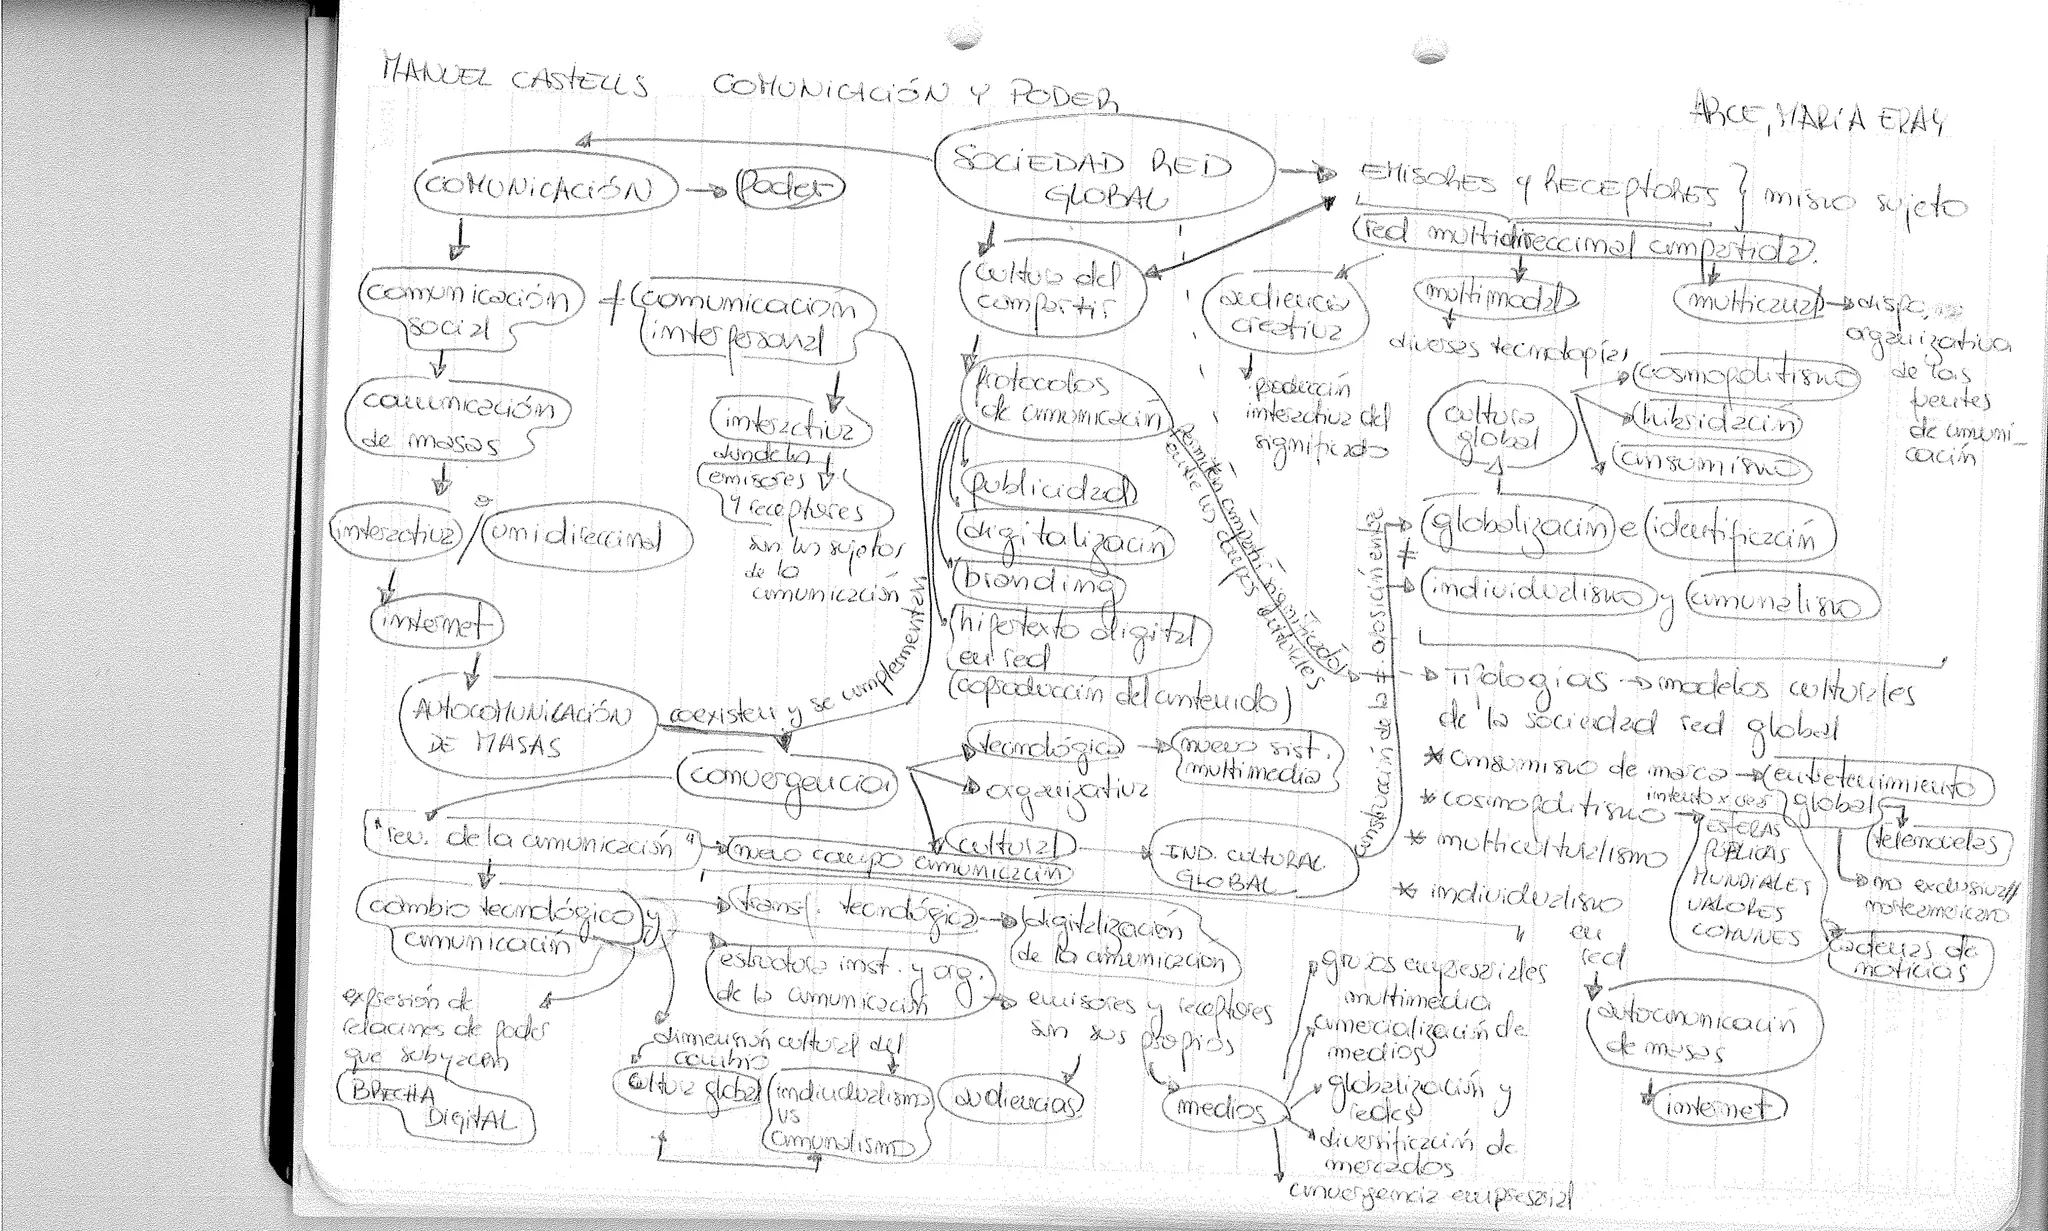 MANUEL CASTELLS COMUNICACIÓN Y PODER
ARCE, MARÍA ERAY
SOCIEDAD RED
GLOBAL
COMUNICACIÓN
Poder
EMISORES Y RECEPTORES } mismo sujeto
red multidireccional compartida.
comunicación
social
+
comunicación
interpersonal
cultura del
compartir
audiencia
creativa
multimodal
multicanal
dispo.
organizativa
de las
fuentes
de comuni-
cación
diversas tecnologías
producción
interactiva del
significado
comunicación
de masas
interactiva
donde los
emisores
y receptores
son los sujetos
de la
comunicación
protocolos
de comunicación
permiten compartir significados
entre los campos culturales
cultura
global
cosmopolitismo
hibridación
consumismo
publicidad
digitalización
branding
hipertexto digital
en red
(coproducción del contenido)
interactiva / o unidireccional
internet
globalización e identificación
≠
individualismo y comunalismo
AUTOCOMUNICACIÓN
DE MASAS
coexisten y se complementan
Tipologías → modelos culturales
de la sociedad red global
* consumismo de marca → entretenimiento
global
* cosmopolitismo
intento x crear
ESFERAS
PÚBLICAS
MUNDIALES
VALORES
COMUNES
telenovelas
no exclusiva//
norteamericano
cadenas de
noticias
* multiculturalismo
* individualismo
en
red
autocomunicación
de masas
internet
convergencia
tecnológica
nuevo sist.
multimedia
organizativa
cultural
IND. CULTURAL
GLOBAL
construcción de la ≠ oposición entre
"rev. de la comunicación"
nuevo campo comunicación
cambio tecnológico y
comunicación
transf. tecnológica
digitalización
de la comunicación
estructura inst. y org.
de la comunicación
emisores y receptores
son sus propios
expresión de
relaciones de poder
que subyacen
BRECHA
DIGITAL
dimensión cultural del
cambio
cultura global
individualismo
vs
comunalismo
audiencias
medios
grupos empresariales
multimedia
comercialización de
medios
globalización y
redes
diversificación de
mercados
convergencia empresarial